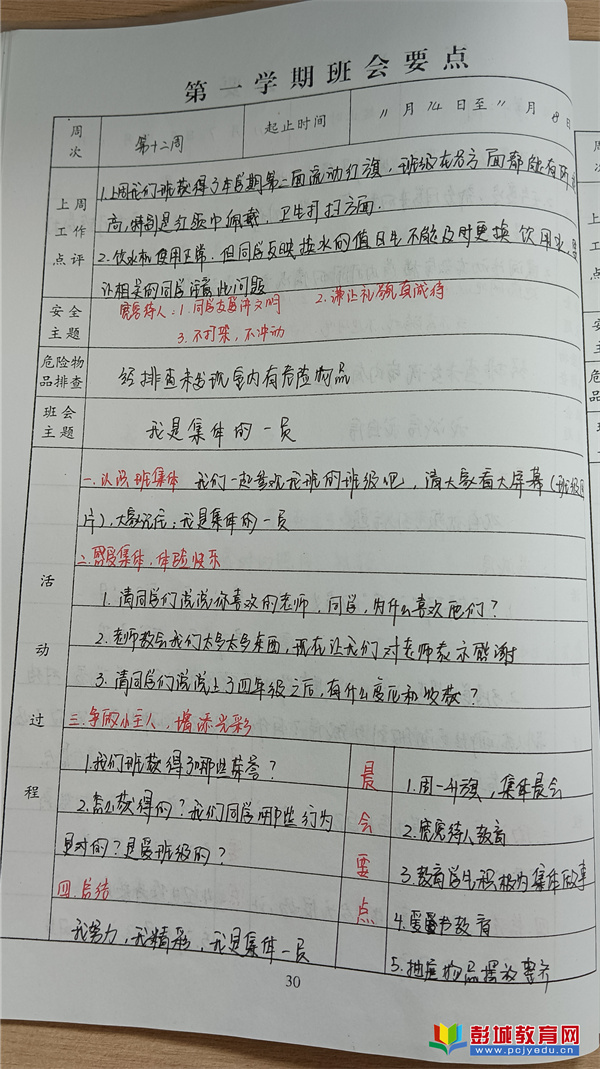 第一学期班会要点
周次 第十二周 起止时间 11月14日至11月8日
上周工作点评
1.上周我们班获得了本学期第二面流动红旗，班级在各方面都能有所
高，特别是红领巾佩戴，卫生打扫方面.
2.饮水机使用正常，但同学反映换水的值日生不能及时更换饮用水，
让相关的同学注意此问题
安全主题
宽容待人：1.同学友爱讲文明 2.谦让礼貌真诚待
3.不打架，不冲动
危险物品排查 经排查未发现室内有危险物品
班会主题 我是集体的一员
活动过程
一.认识班集体 我们一起参观我班的班级吧，请大家看大屏幕（班级
片），大家记住：我是集体的一员
二.感受集体，体验快乐
1.请同学们说说你喜欢的老师，同学，为什么喜欢他们？
2.老师教会我们太多太多东西，现在让我们对老师表示感谢
3.请同学们说说上了四年级之后，有什么变化和收获？
三.争做小主人，增添光彩
1.我们班获得了哪些荣誉？
2.怎么获得的？我们同学哪些行为
是对的？是爱班级的？
四.总结
我努力，我精彩，我是集体一员
晨会要点
1.周一升旗，集体晨会
2.宽容待人教育
3.教育学生积极为集体做事
4.爱图书教育
5.抽屉物品摆放整齐
30
彭城教育网
www.pcjyedu.cn